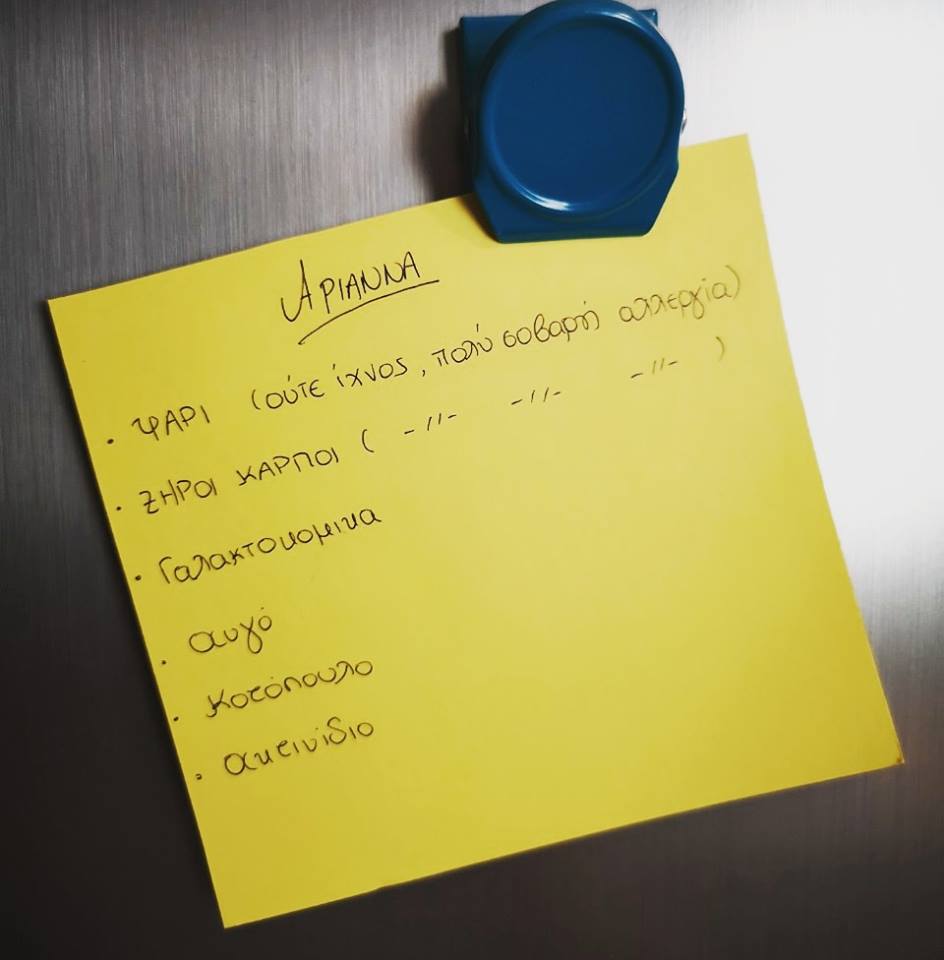 ΑΡΙΑΝΝΑ
· ΨΑΡΙ (ούτε ίχνος, πολύ σοβαρή αλλεργία)
· ΞΗΡΟΙ ΚΑΡΠΟΙ ( -//- -//- -//- )
· Γαλακτοκομικα
· αυγό
· κοτόπουλο
· ακτινίδιο